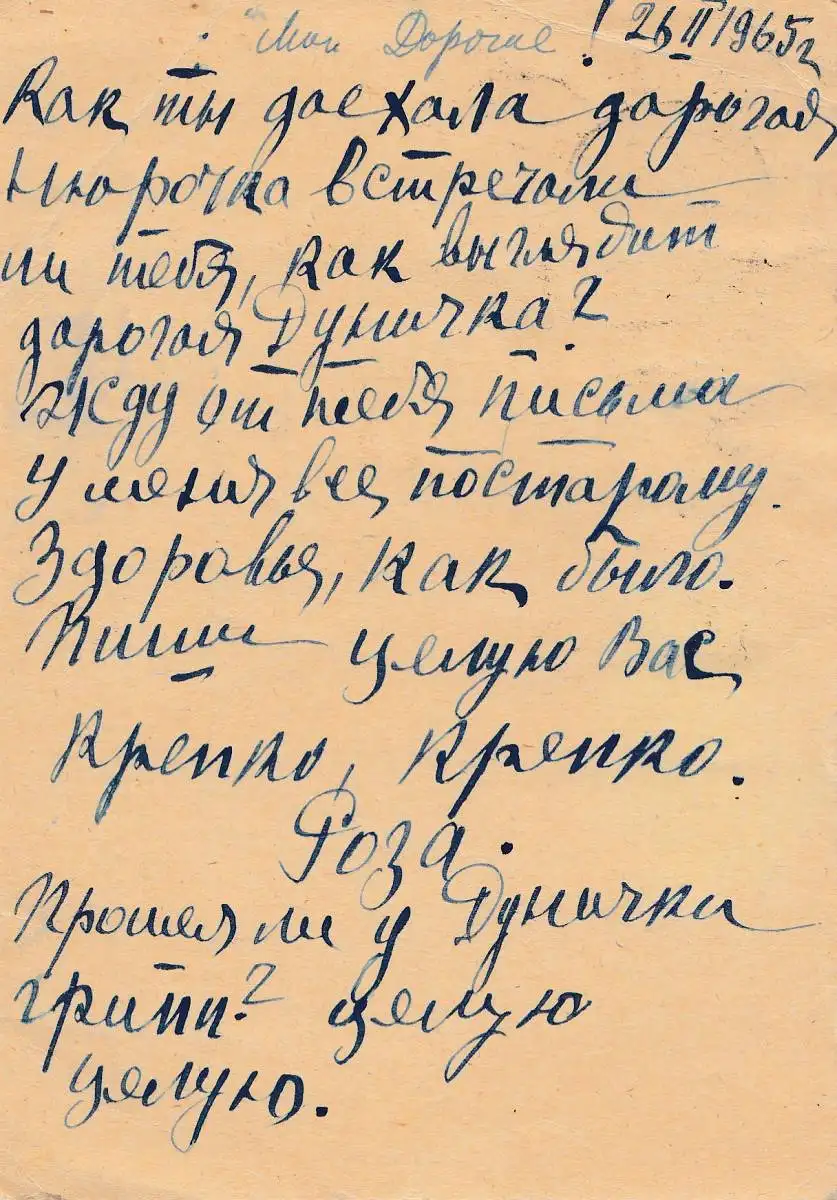 Мои Дорогие! 26 II 1965г
Как ты доехала дорогая
Нюрочка встречали
ли тебя, как выглядит
дорогая Дуничка?
Жду от тебя письма
У меня все постарому.
Здоровье, как было.
Пиши целую Вас
крепко, крепко.
Роза.
Прошел ли у Дунички
грипп? целую
целую.